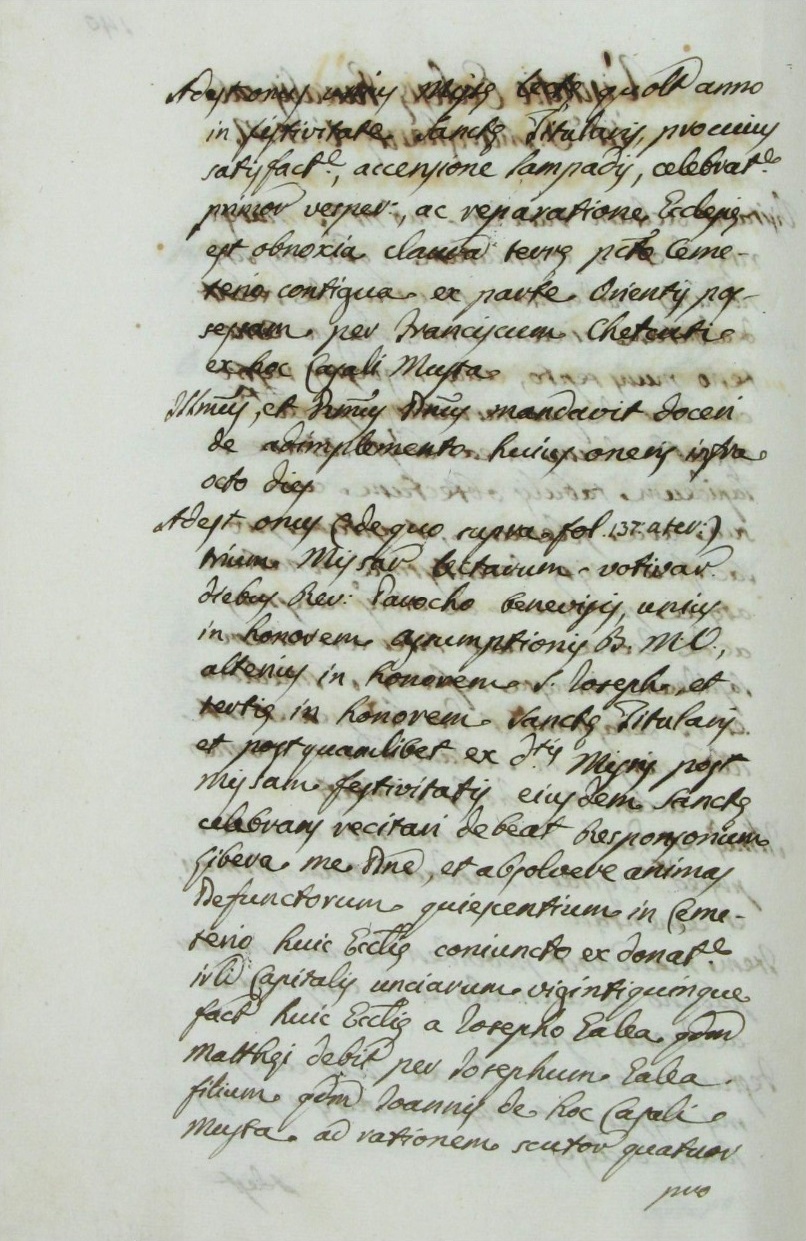 Adest onus unius Missę lectę quolt anno
in festivitate Sanctę Titularis, pro cuius
satisfact.e, accensione lampadis, celebrat.e
primor vesper:, ac reparatione Ecclesię
est obnoxia clausa terrę pcto Ceme-
terio contigua ex parte Orientis pos-
sessam per Franciscum Chetcuti
ex hoc Casali Musta
Illmus, et Rmus Dnus mandavit doceri
de adimplemento huius oneris infra
octo dies
Adest onus (de quo supra fol. 137. a ter:)
trium Missar lectarum votivar
diebus Rev: Parocho benevisis, unius
in honorem Assumptionis B. M. V.,
alterius in honorem S. Joseph, et
tertię in honorem Sanctę Titularis
et post quamlibet ex d.tis Missis post
missam festivitatis eiusdem Sanctę
celebrans recitari debeat Responsorium
Libera me Dne, et absolvere animas
Defunctorum quiescentium in Ceme-
terio huic Ecclię coniuncto ex donat.e
Capitalis unciarum vigintiquinque
fact huic Ecclię a Josepho Galea qdm
Matthęi debit per Josephum Galea
filium qdm Joannis de hoc Casali
Musta ad rationem scutor quatuor
pro